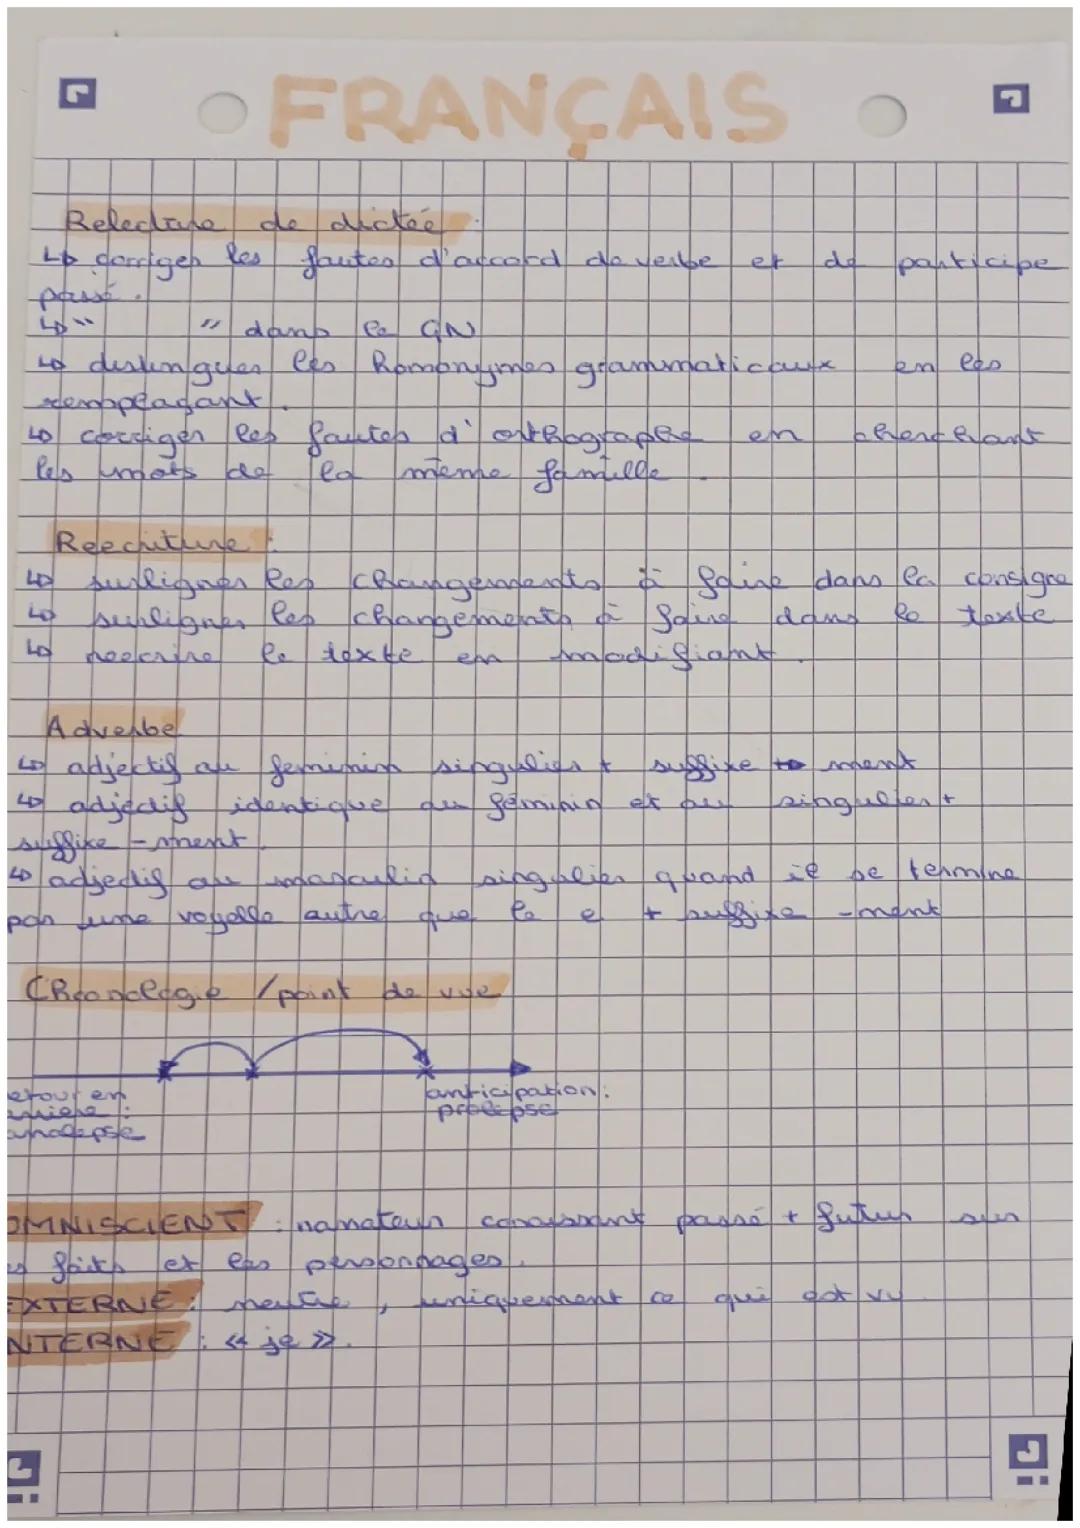 FRANÇAIS
Relecture de dictée :
↳ corriger les fautes d'accord de verbe et de participe
passé.
↳ " " dans le GN
↳ distinguer les homonymes grammaticaux en les
remplaçant.
↳ corriger les fautes d'orthographe en cherchant
les mots de la même famille.
Reecriture :
↳ surligner les changements à faire dans la consigne
↳ surligner les changements à faire dans le texte
↳ reecrire le texte en modifiant.
Adverbe
↳ adjectif au feminin singulier + suffixe ment
↳ adjectif identique au féminin et au singulier +
suffixe -ment.
↳ adjectif au masculin singulier quand il se termine
par une voyelle autre que le e + suffixe -ment
Chronologie / point de vue
etour en
rriere :
analepse
anticipation :
prolepse
OMNISCIENT : narrateur connaissant passé + futur sur
es faits et les personnages.
EXTERNE : neutre, uniquement ce qui est vu.
INTERNE : « je ».